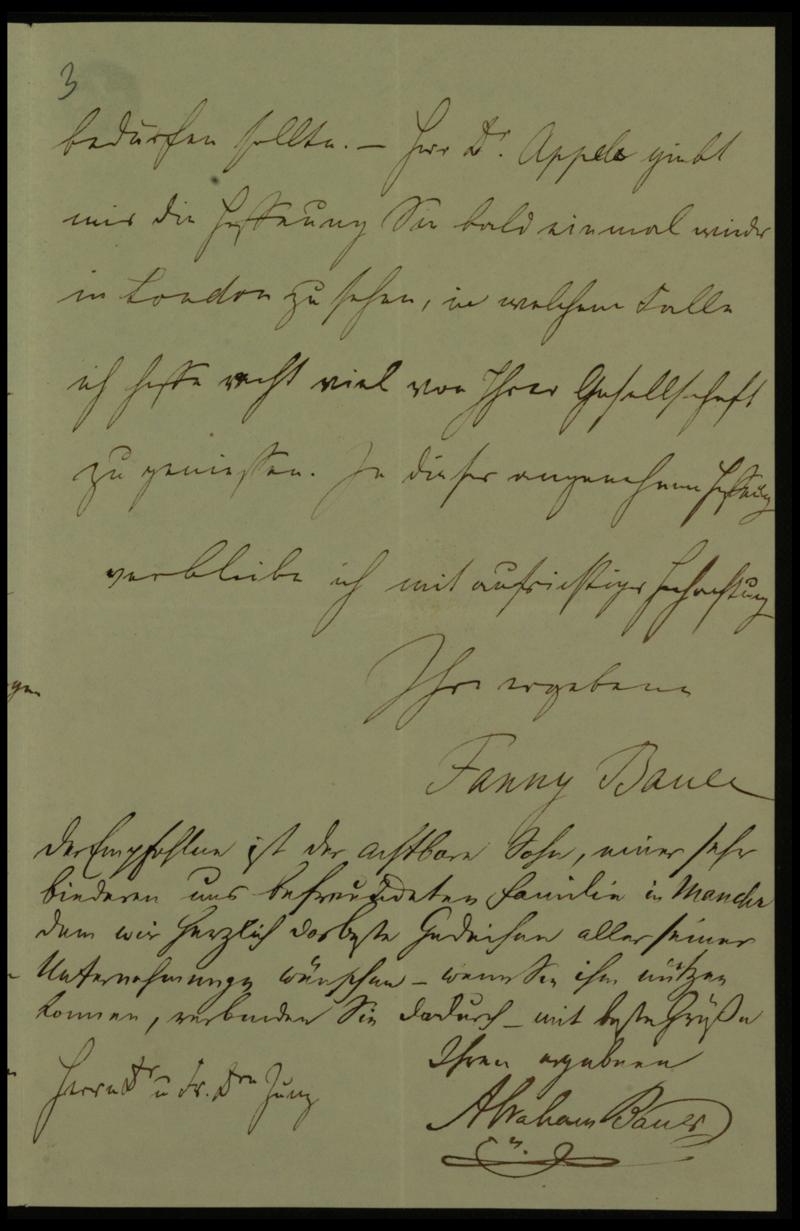 3
bedürfen sollte. — Herr Dr. Appele giebt
mir die Hoffnung Sie bald einmal wieder
in London zu sehen, in welchem Falle
ich hoffe recht viel von Ihrer Gesellschaft
zu geniessen. In dieser angenehmen Hoffnung
verbleibe ich mit aufrichtiger Hochachtung
Ihre ergebene
gen
Fanny Bauer
Der Empfohlne ist der achtbare Sohn, einer sehr
biederen uns befreundeten Familie in Manchr
dem wir herzlich das beste Gedeihen aller seiner
Unternehmungen wünschen – wenn Sie ihm nützen
können, verbinden Sie dadurch – mit besten Grüßen
Ihren ergebenen
Herrn Dr u Fr. Drn Zunz
Abraham Bauer